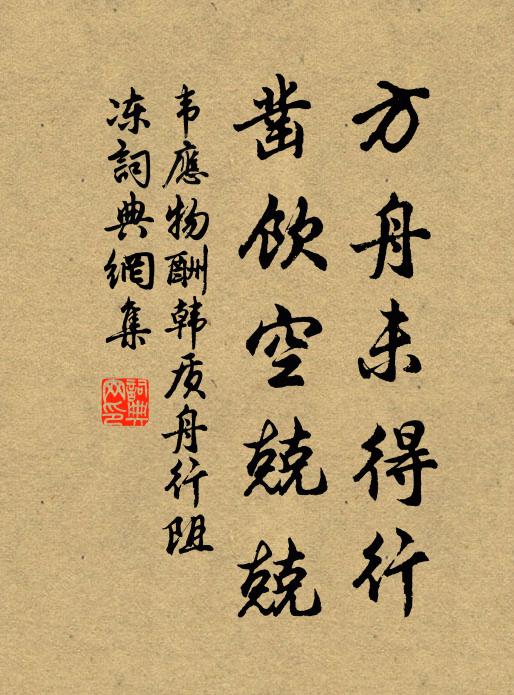 方舟未得行
凿飲空兢兢
韦應物酬韩质舟行阻
冻詞典網集
詞典網印